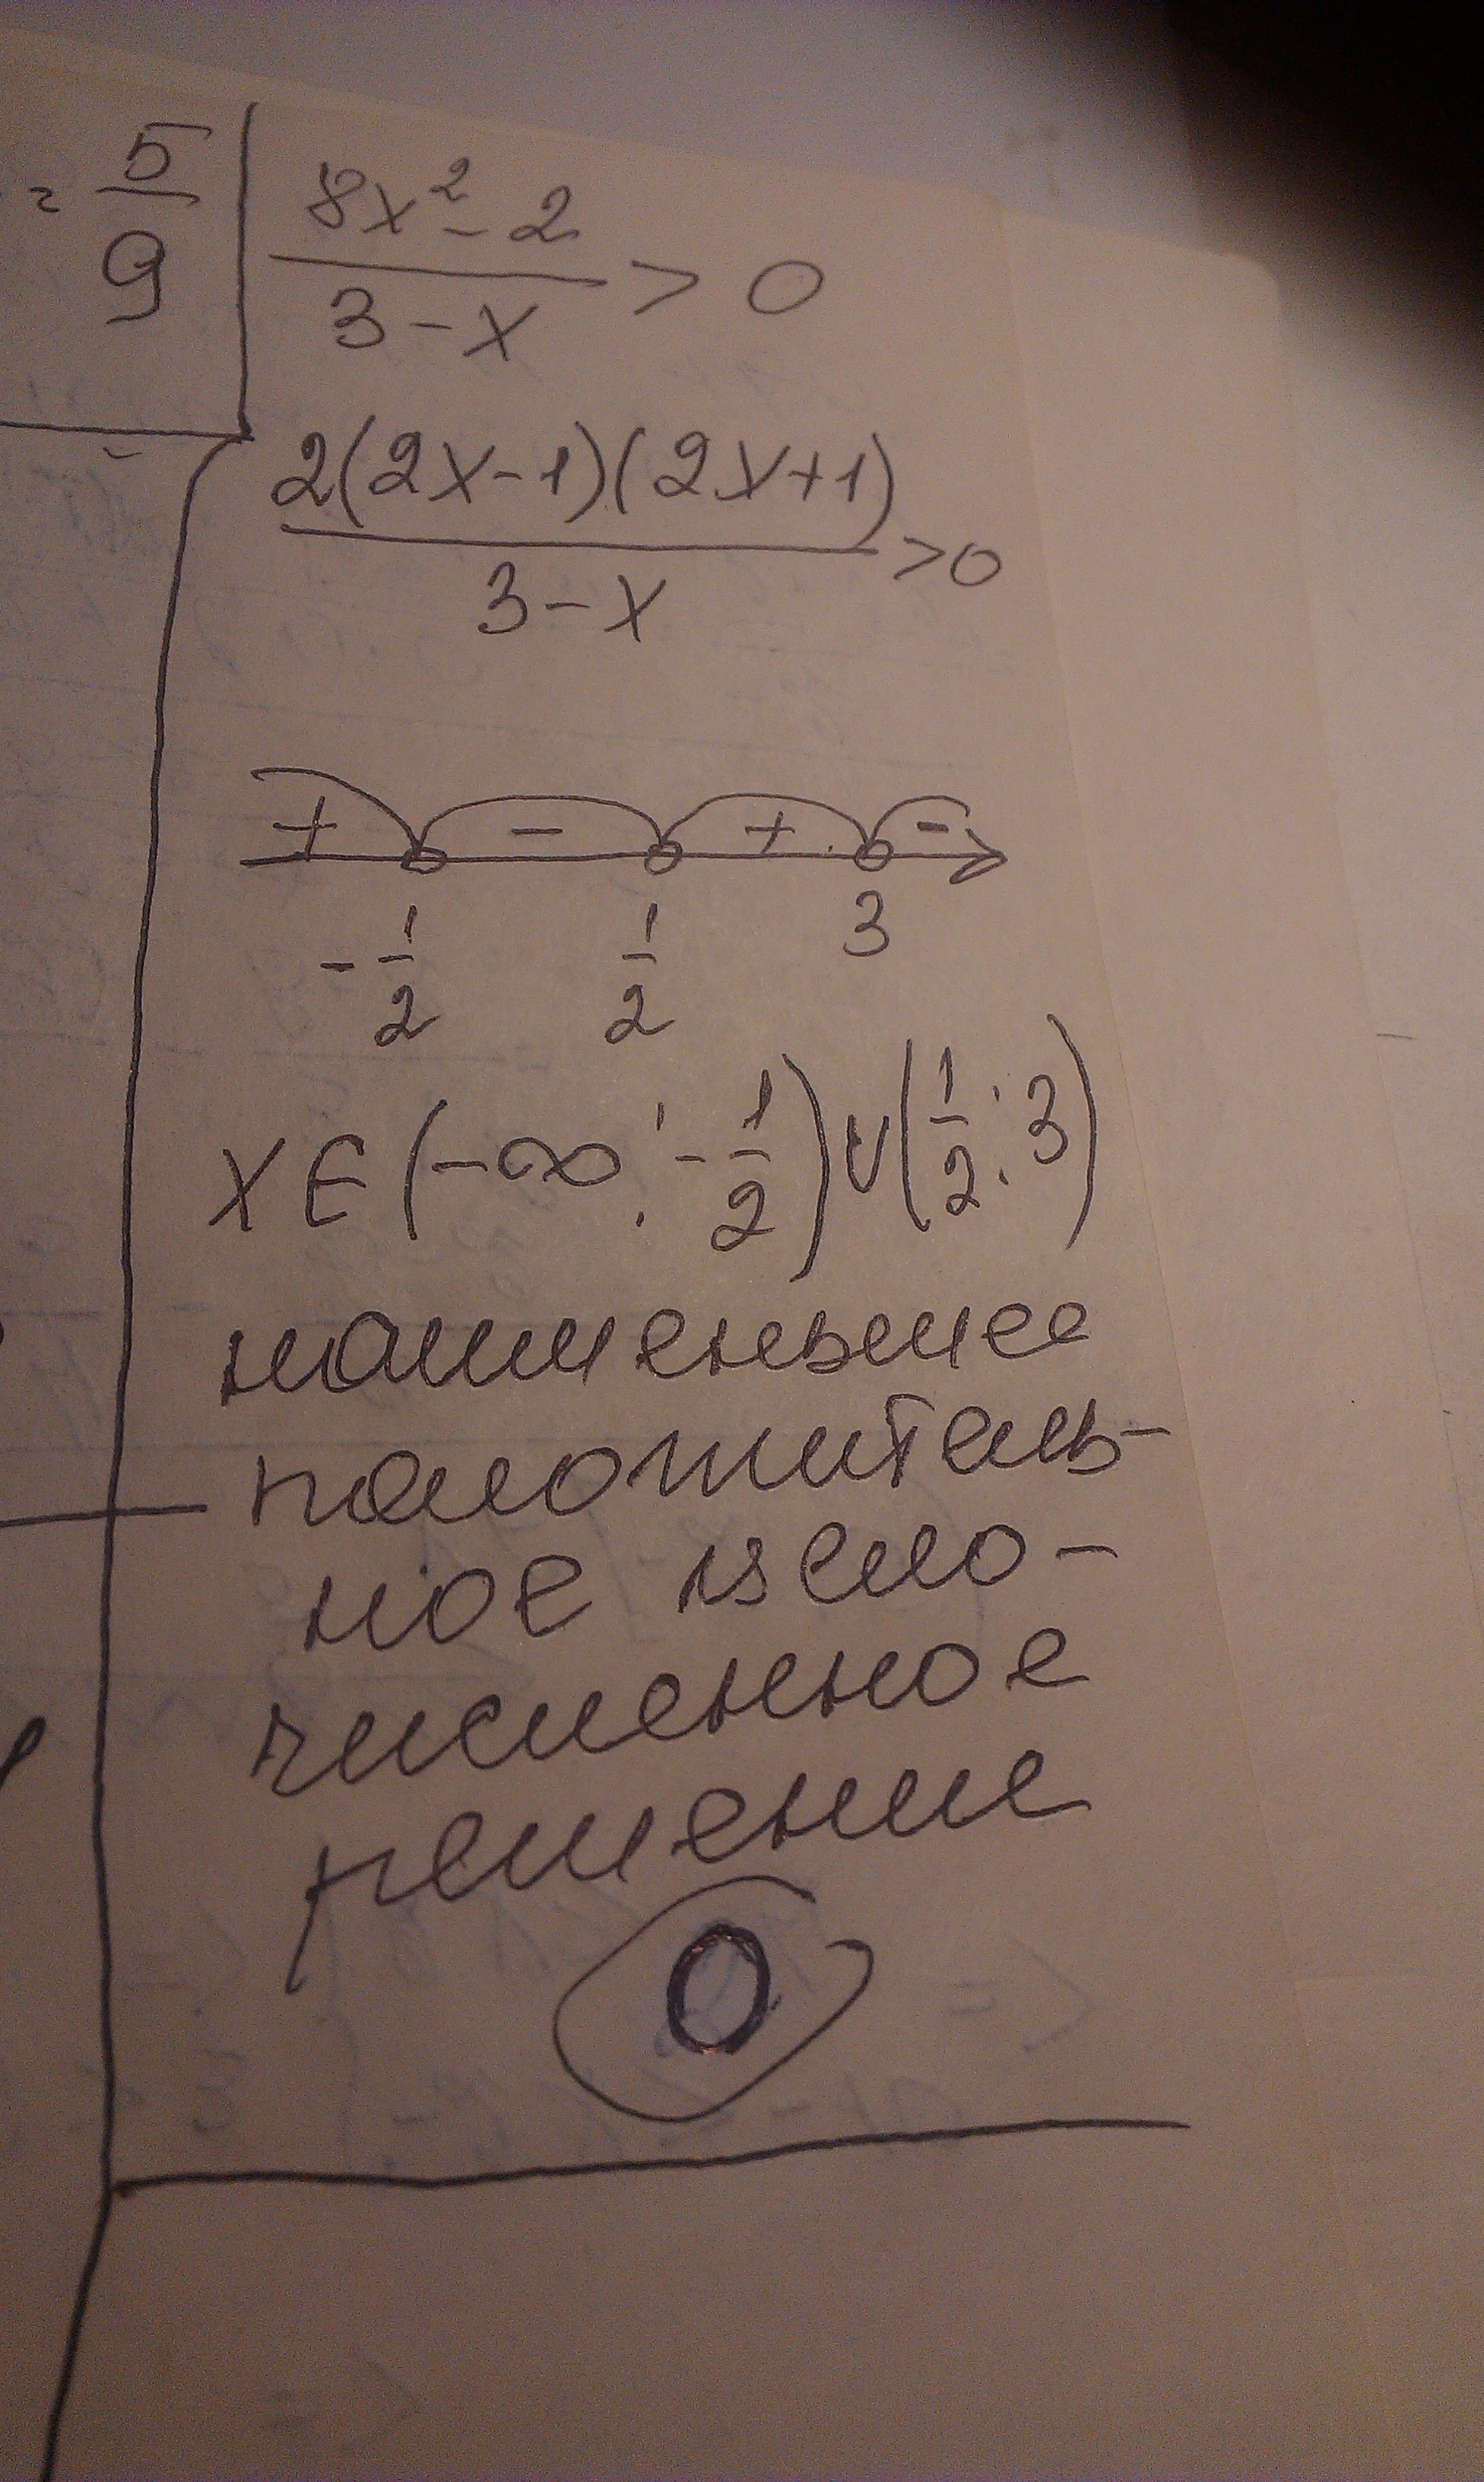 = 5/9
(8x² - 2)/(3 - x) > 0
2(2x-1)(2x+1)/(3 - x) > 0
+ - + -
-1/2 1/2 3
x ∈ (-∞; -1/2) ∪ (1/2; 3)
наименьшее
положитель-
ное цело-
численное
решение
0